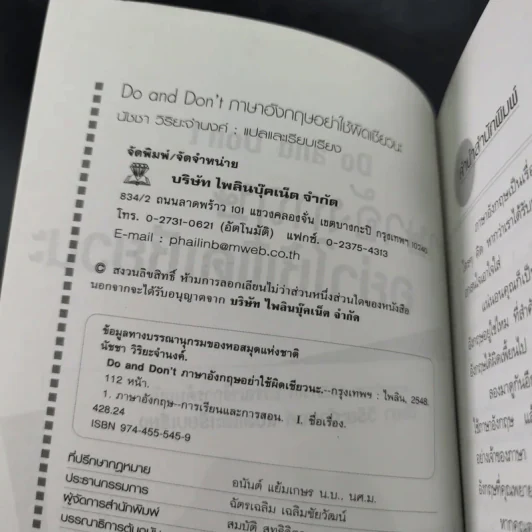 Do and Don't ภาษาอังกฤษอย่าใช้ผิดเชียวนะ
นัชชา วิริยะจำนงค์ : แปลและเรียบเรียง
จัดพิมพ์/จัดจำหน่าย
บริษัท ไพลินบุ๊คเน็ต จำกัด
834/2 ถนนลาดพร้าว 101 แขวงคลองจั่น เขตบางกะปิ กรุงเทพฯ 10240
โทร. 0-2731-0621 (อัตโนมัติ) แฟกซ์. 0-2375-4313
E-mail : phailinb@mweb.co.th
© สงวนลิขสิทธิ์ ห้ามการลอกเลียนไม่ว่าส่วนหนึ่งส่วนใดของหนังสือ
นอกจากจะได้รับอนุญาตจาก บริษัท ไพลินบุ๊คเน็ต จำกัด
ข้อมูลทางบรรณานุกรมของหอสมุดแห่งชาติ
นัชชา วิริยะจำนงค์.
Do and Don't ภาษาอังกฤษอย่าใช้ผิดเชียวนะ.--กรุงเทพฯ : ไพลิน, 2548.
112 หน้า.
1. ภาษาอังกฤษ--การเรียนและการสอน. I. ชื่อเรื่อง.
428.24
ISBN 974-455-545-9
ที่ปรึกษากฎหมาย อนันต์ แย้มเกษร น.บ., นศ.ม.
ประธานกรรมการ ฉัตรเฉลิม เฉลิมชัยวัฒน์
ผู้จัดการสำนักพิมพ์ สมบัติ
บรรณาธิการต้นฉบับ
สำนักพิมพ์
ภาษาอังกฤษเป็นเรื่อง
แน่นอนคุณก็เป็น
ลองมาดูกันถึง
ใช้ภาษาอังกฤษ
อย่างเจ้าของภาษา
อังกฤษที่คุณพยายาม
หากคุณ